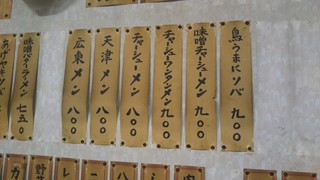 鳥うまにソバ 九〇〇
味噌チャーシューメン 九〇〇
チャーシューワンタンメン 九〇〇
チャーシューメン 八〇〇
天津メン 八〇〇
広東メン 八〇〇
味噌バターラーメン 七五〇